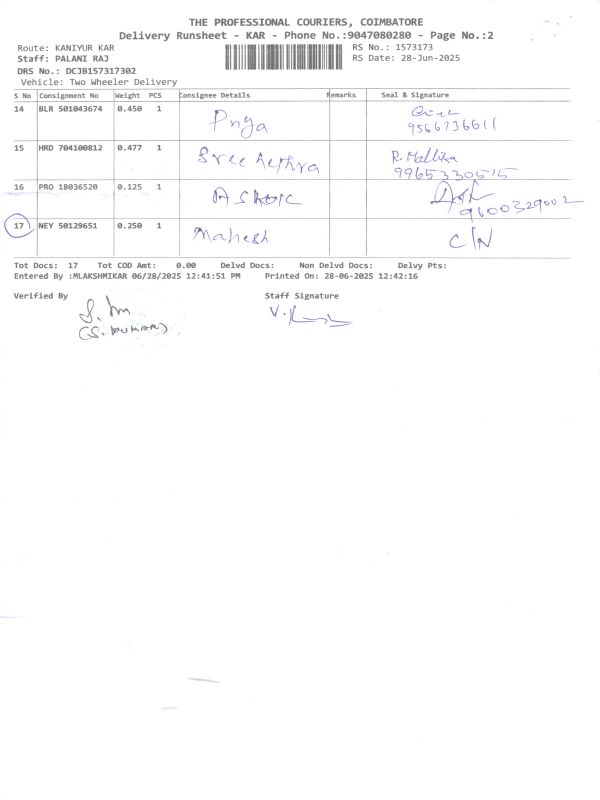 THE PROFESSIONAL COURIERS, COIMBATORE
Delivery Runsheet - KAR - Phone No.:9047080280 - Page No.:2
Route: KANIYUR KAR RS No.: 1573173
Staff: PALANI RAJ RS Date: 28-Jun-2025
DRS No.: DCJB157317302
Vehicle: Two Wheeler Delivery
S No Consignment No Weight PCS Consignee Details Remarks Seal & Signature
14 BLR 501043674 0.450 1 Priya
9566736611
15 HRD 704100812 0.477 1 Sree Nethra R. Mallika
9965330515
16 PRO 18036520 0.125 1 ASHOK
9600329002
17 NEY 50129651 0.250 1 Mahesh C/N
Tot Docs: 17 Tot COD Amt: 0.00 Delvd Docs: Non Delvd Docs: Delvy Pts:
Entered By :MLAKSHMIKAR 06/28/2025 12:41:51 PM Printed On: 28-06-2025 12:42:16
Verified By Staff Signature
(S. KUMAR)